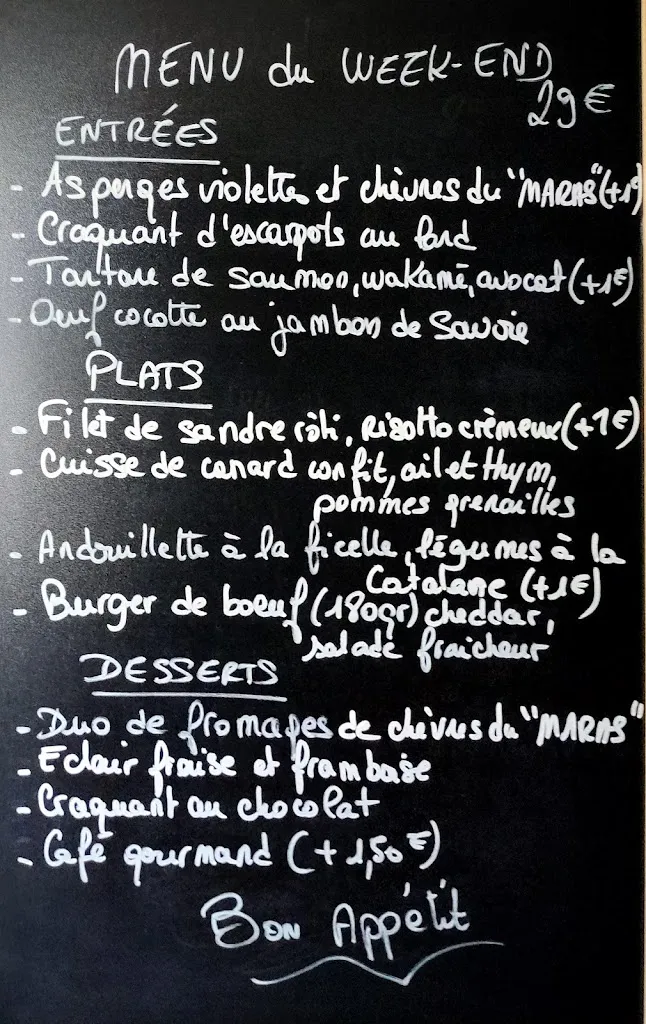 MENU du WEEK-END
29€
ENTRÉES
- Asperges violettes et chèvres du "MARAS" (+1€
- Craquant d'escargots au lard
- Tartare de saumon, wakamé, avocat (+1€)
- Oeuf cocotte au jambon de Savoie
PLATS
- Filet de sandre rôti, Risotto crèmeux (+1€)
- Cuisse de canard confit, ail et thym,
pommes grenailles
- Andouillette à la ficelle, légumes à la
Catalane (+1€)
- Burger de boeuf (180gr) cheddar,
salade fraicheur
DESSERTS
- Duo de fromages de chèvres du "MARAS"
- Eclair fraise et framboise
- Craquant au chocolat
- Café gourmand (+1,50€)
BON APPÉTIT